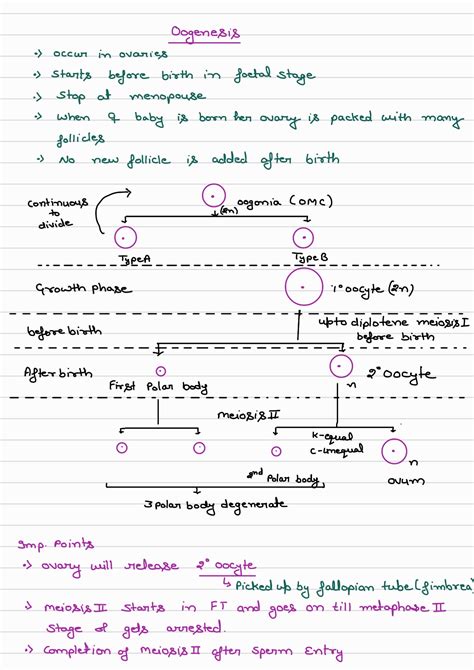 Oogenesis
·) occur in ovaries
·) starts before birth in foetal stage
·) stop at menopouse
·) when ♀ baby is born her ovary is packed with many
follicles
·) No new follicle is added after birth
continuous
to
divide
oogonia (OMC)
(2n)
Type A
Type B
Growth phase
1° oocyte (2n)
upto diplotene meiosis I
before birth
before birth
After birth
First Polar body
n
2° oocyte
meiosis II
K-equal
C-unequal
n
2nd Polar body
ovum
3 Polar body degenerate
Imp. Points
·) ovary will release 2° oocyte
↳ Picked up by fallopian tube (fimbrea)
·) meiosis II starts in FT and goes on till metaphase II
stage & gets arrested.
·) completion of meiosis II after sperm Entry